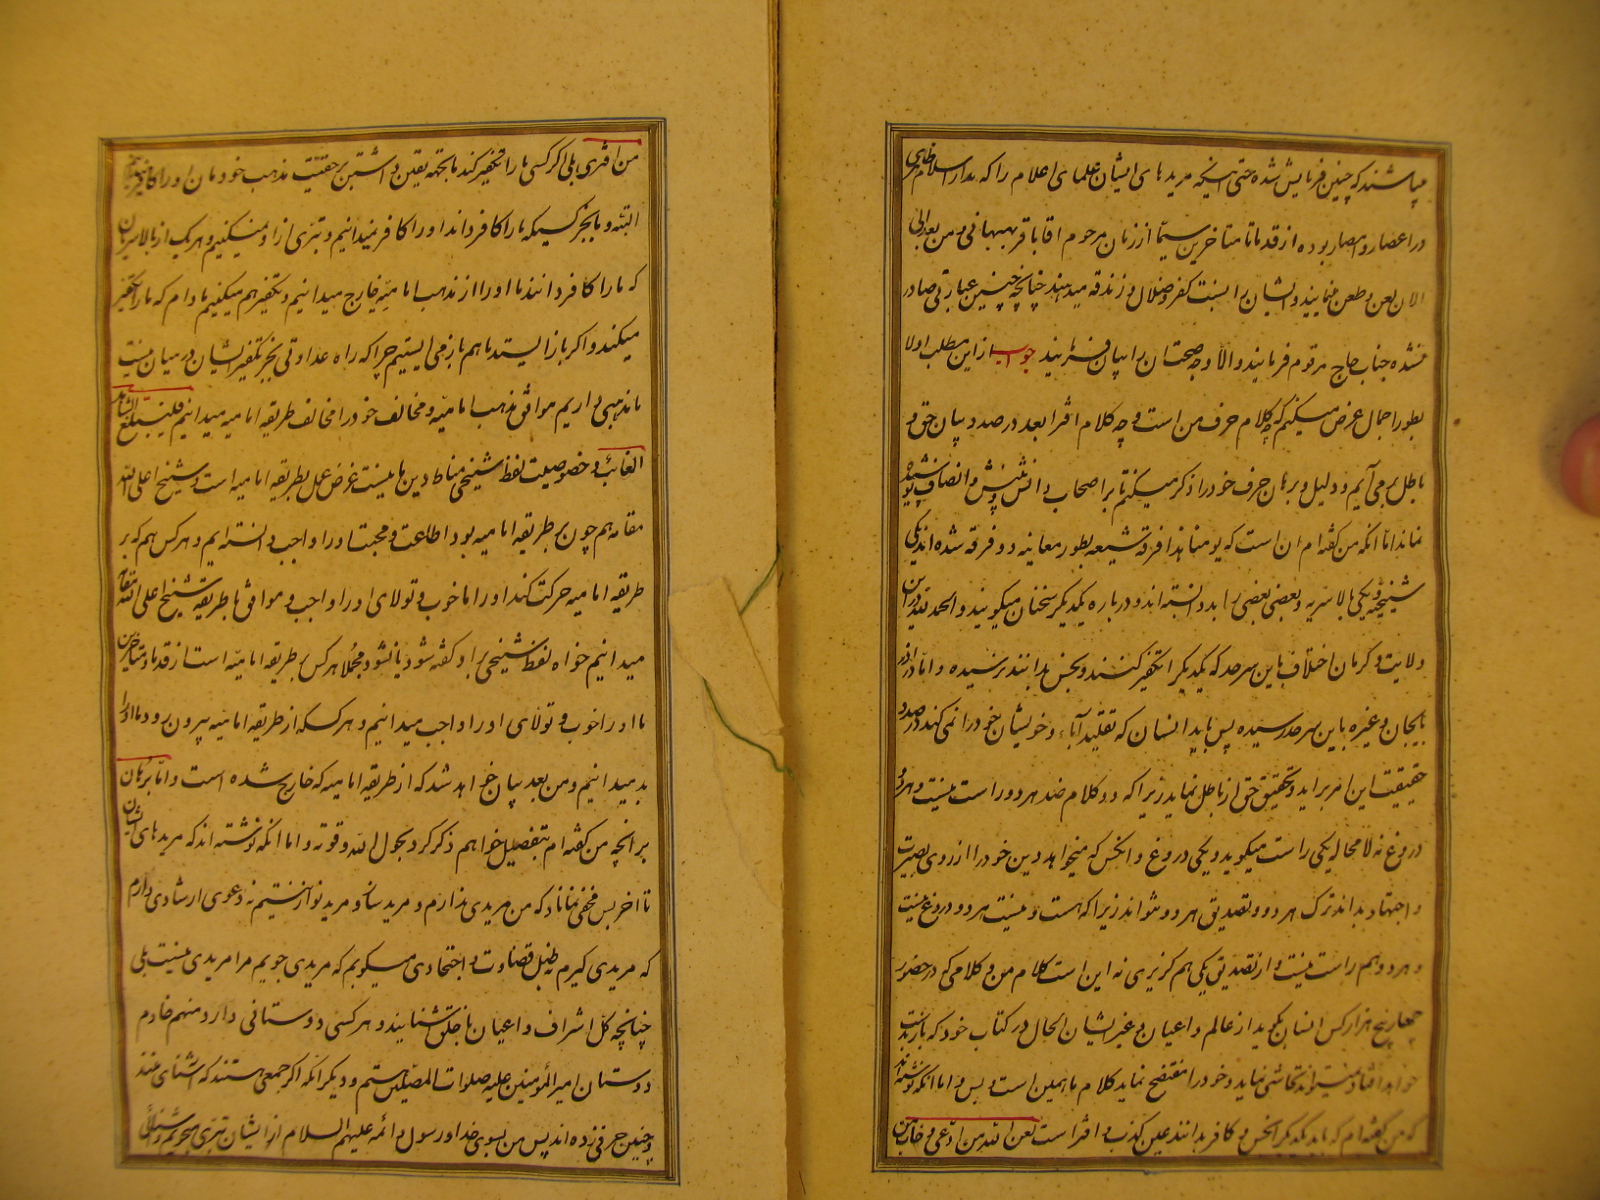 میباشند که چنین فرمایش شده حتی اینکه مریدهای ایشان علمای اعلام را که مدار اسلام
در اعصار و امصار بوده از قدما تا متاخرین سیّما از زمان مرحوم اقا باقر بهبهانی و من بعد الی
الان لعن و طعن مینمایند و ایشان را نسبت کفر و ضلال و زندقه میدهند چنانچه چنین عبارتی صادر
نشده جناب حاج مرقوم فرمایند والّا وجه صحتشان را بیان فرمایند جواب از این مطلب اولا
بطور اجمال عرض میکنم که چه کلام حرف من است و چه کلام افترا بعد درصدد بیان حق و
باطل برمی آیم و دلیل و برهان حرف خود را ذکر میکنم تا بر اصحاب دانش و بینش و انصاف پوشیده
نماند امّا انکه من گفته ام ان است که یومنا هذا فرقه شیعه بطور معاینه دو فرقه شده اند یکی
شیخیّه و یکی بالاسریه و بعضی بعضی را بد دانسته اند و درباره یکدیگر سخنان میگویند و الحمد لله در این
ولایت و کرمان اختلاف باین سرحد که یکدیگر را تکفیر کنند و نجس بدانند نرسیده و امّا در اذر
بایجان و غیره باین سرحد رسیده پس باید انسان که تقلید آباء و خویشان خود را نمی کند درصدد
حقیقت این امر براید و تحقیق حق از باطل نماید زیرا که دو کلام ضد هر دو راست نیست و هر دو
دروغ نه لامحاله یکی راست میگوید و یکی دروغ و انکس که میخواهد دین خود را از روی بصیرت
و اجتهاد بداند ترک هر دو و تصدیق هر دو نتواند زیرا که هست و نیست هر دو دروغ نیست
و هر دو هم راست نیست و از تصدیق یکی هم گزیری نه این است کلام من و کلامی که در حضور
چهار پنج هزار کس انسان بگوید از عالم و اعیان و غیر ایشان الحال در کتاب خود که
نماید و خود را مفتضح نماید کلام ما همین است و بس و اما انکه نوشته اند
که من گفته ام که باید یکدیگر را نجس و کافر بدانند عین کذب و افترا است لعن الله من ادّعی و خاب
من افتری بلی اگر کسی ما را تکفیر کند ما بجهة یقین داشتن بر حقیّت مذهب خودمان او را کافر
البتّه و ما بجز کسیکه ما را کافر داند او را کافر نمیدانیم و تبرّی از او نمیکنیم و هر یک از بالاسریان
که ما را کافر دانند ما او را از مذهب امامیّه خارج میدانیم و تکفیر هم میکنیم مادام که ما را تکفیر
میکند و اگر باز ایستد ما هم باز می ایستیم چرا که راه عداوتی بجز تکفیر ایشان در میان نیست
ما مذهبی داریم موافق مذهب امامیّه و مخالف خود را مخالف طریقه امامیه میدانیم فلیبلغ الشاهد
الغائب و خصوصیت لفظ شیخی مناط دین ما نیست غرض عمل بطریقه امامیه است و شیخ اعلی الله
مقامه هم چون بر طریقه امامیه بود اطاعت و محبت او را واجب دانسته ایم و هر کس هم که بر
طریقه امامیه حرکت کند او را ما خوب و تولای او را واجب و موافق با طریقه شیخ اعلی الله مقامه
میدانیم خواه لفظ شیخی را باو گفته شود یا نشود مجملا هر کس بر طریقه امامیّه است از قدما و متاخرین
ما او را خوب و تولای او را واجب میدانیم و هر کسکه از طریقه امامیه بیرون رود ما او را
بد میدانیم و من بعد بیان خواهد شد که از طریقه امامیه که خارج شده است و امّا برهان
بر انچه من گفته ام بتفصیل خواهم ذکر کرد بحول الله و قوته و اما انکه نوشته اند که مریدهای ایشان
تا اخر پس مخفی نماناد که من مریدی ندارم و مرید ساز و مرید نواز نیستم نه دعوی ارشادی دارم
که مریدی گیرم نه طبل قضاوت و اجتهادی میکوبم که مریدی جویم مرا مریدی نیست بلی
چنانچه کل اشراف و اعیان با خلق اشنایند و هر کسی دوستانی دارد منهم خادم
دوستان امیرالمومنین علیه صلوات المصلین هستم و دیگر انکه اگر جمعی هستند که اشنای منند
و چنین حرفی زده اند پس من بسوی خدا و رسول و ائمه علیهم السلام از ایشان تبری میجویم